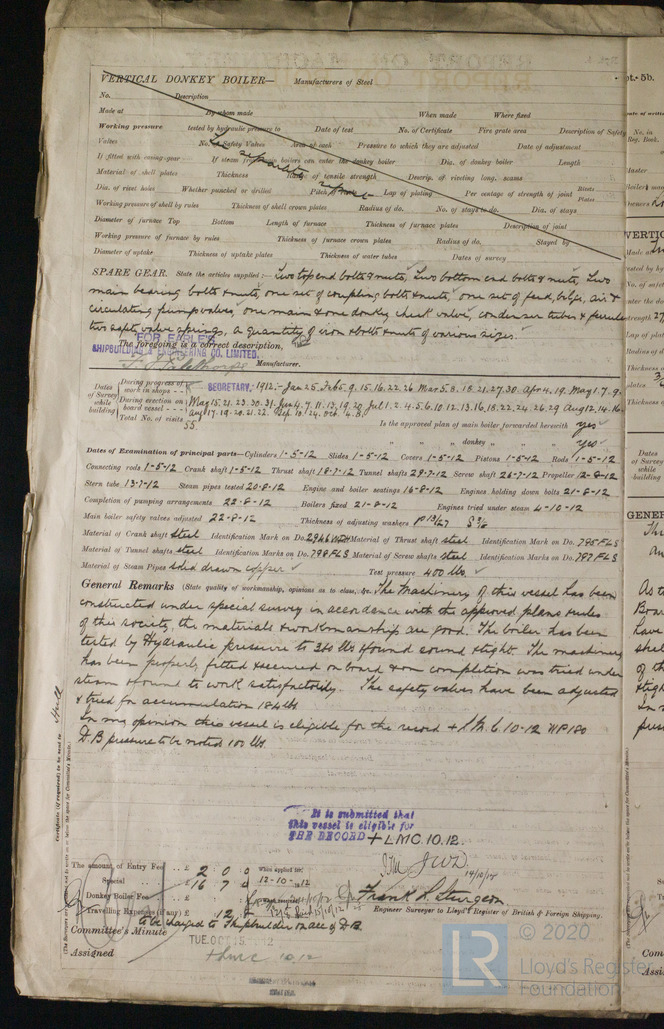 VERTICAL DONKEY BOILER— Manufacturers of Steel
No. Description
Made at By whom made When made Where fixed
Working pressure tested by hydraulic pressure to Date of test No. of Certificate Fire grate area Description of Safety
Valves No. of Safety Valves Area of each Pressure to which they are adjusted Date of adjustment
If fitted with easing-gear If steam from main boilers can enter the donkey boiler Dia. of donkey boiler Length
Material of shell plates Thickness Range of tensile strength Descrip. of riveting long. seams
Dia. of rivet holes Whether punched or drilled Pitch of rivets Lap of plating Per centage of strength of joint Rivets Plates
Working pressure of shell by rules Thickness of shell crown plates Radius of do. No. of stays to do. Dia. of stays
Diameter of furnace Top Bottom Length of furnace Thickness of furnace plates Description of joint
Working pressure of furnace by rules Thickness of furnace crown plates Radius of do. Stayed by
Diameter of uptake Thickness of uptake plates Thickness of water tubes Dates of survey
See separate report
SPARE GEAR. State the articles supplied:— Two top end bolts & nuts, Two bottom end bolts & nuts, Two
main bearing bolts & nuts, one set of coupling bolts & nuts, one set of feed, bilge, air &
circulating pump valves, one main & one donkey check valve, condenser tubes & ferrules
two safety valve springs, a quantity of iron & bolts & nuts of various sizes.
The foregoing is a correct description,
FOR EARLE'S
SHIPBUILDING & ENGINEERING CO. LIMITED,
Manufacturer.
SECRETARY.
Dates of Survey while building
During progress of work in shops - - 1912:- Jan 25. Feb 5. 9. 15. 16. 22. 26 Mar 5. 8. 18. 21. 27. 30 Apr 4. 19. May 1. 7. 9.
During erection on board vessel - - - May 15. 21. 23. 30. 31. Jun 4. 7. 11. 13. 19. 20 Jul 1. 2. 4. 5. 6. 10. 12. 13. 16. 18. 22. 24. 26. 29 Aug 12. 14. 16.
Aug 17. 19. 20. 21. 22. Sep 13. 24. Oct 4. 8.
Total No. of visits 55. Is the approved plan of main boiler forwarded herewith yes
" " " donkey " " " yes
Dates of Examination of principal parts—Cylinders 1-5-12 Slides 1-5-12 Covers 1-5-12 Pistons 1-5-12 Rods 1-5-12
Connecting rods 1-5-12 Crank shaft 1-5-12 Thrust shaft 18-7-12 Tunnel shafts 29-7-12 Screw shaft 26-7-12 Propeller 12-8-12
Stern tube 13-7-12 Steam pipes tested 20-8-12 Engine and boiler seatings 16-8-12 Engines holding down bolts 21-8-12
Completion of pumping arrangements 22-8-12 Boilers fixed 21-8-12 Engines tried under steam 4-10-12
Main boiler safety valves adjusted 22-8-12 Thickness of adjusting washers
Material of Crank shaft steel Identification Mark on Do. Material of Thrust shaft steel Identification Mark on Do. 795 FLS
Material of Tunnel shafts steel Identification Marks on Do. 798 FLS Material of Screw shafts steel Identification Marks on Do. 797 FLS
Material of Steam Pipes solid drawn copper ✓ Test pressure 400 lbs. ✓
General Remarks (State quality of workmanship, opinions as to class, &c. The Machinery of this vessel has been
constructed under special survey in accordance with the approved plans & rules
of this society, the materials & workmanship are good. The boiler has been
tested by Hydraulic pressure to 360 lbs & found sound & tight. The machinery
has been properly fitted & secured on board & on completion was tried under
steam & found to work satisfactorily. The safety valves have been adjusted
& tried for accumulation 184 lbs
In my opinion this vessel is eligible for the record + LMC 10-12 WP180
D.B pressure to be noted 100 lbs.
Certificate (if required) to be sent to Hull
It is submitted that
this vessel is eligible for
THE RECORD + LMC. 10.12.
The amount of Entry Fee .. £ 2 : 0 : 0 When applied for,
Special .. £ 16 : 7 : 12-10-12
Donkey Boiler Fee .. £
Travelling Expenses (if any) £ 12 :
Frank L. Sturgeon.
Engineer Surveyor to Lloyd's Register of British & Foreign Shipping.
to be charged to Shipbuilder on a/c of D.B.
Committee's Minute TUE. OCT 15 1912
Assigned + LMC 10.12
© 2020
LR
Lloyd's Register
Foundation